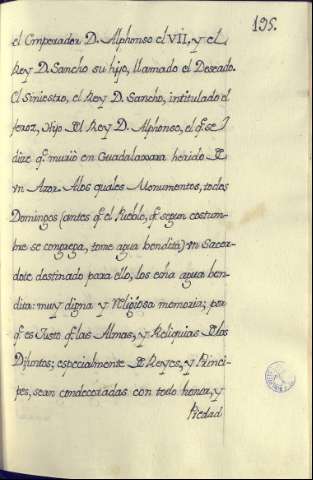 195.
el Emperador D. Alphonso el VII, y el
Rey D. Sancho su hijo, llamado el Deseado.
Al Siniestro, el Rey D. Sancho, intitulado el
feroz, Hijo del Rey D. Alphonso, el qe. se
dize qe. murió en Guadalaxara herido de
vn Azor. Alos quales Monumentos, todos
Domingos (antes qe. el Pueblo, qe. segun costum-
bre se congrega, tome agua bendita) vn Sacer-
dote destinado para ello, los echa agua ben-
dita: muy digna y religiosa memoria; por
qe. es Justo qe. las Almas, y Reliquias delos
Difuntos; especialmente de Reyes, y Princi-
pes, sean condecoradas con todo honor, y
Piedad